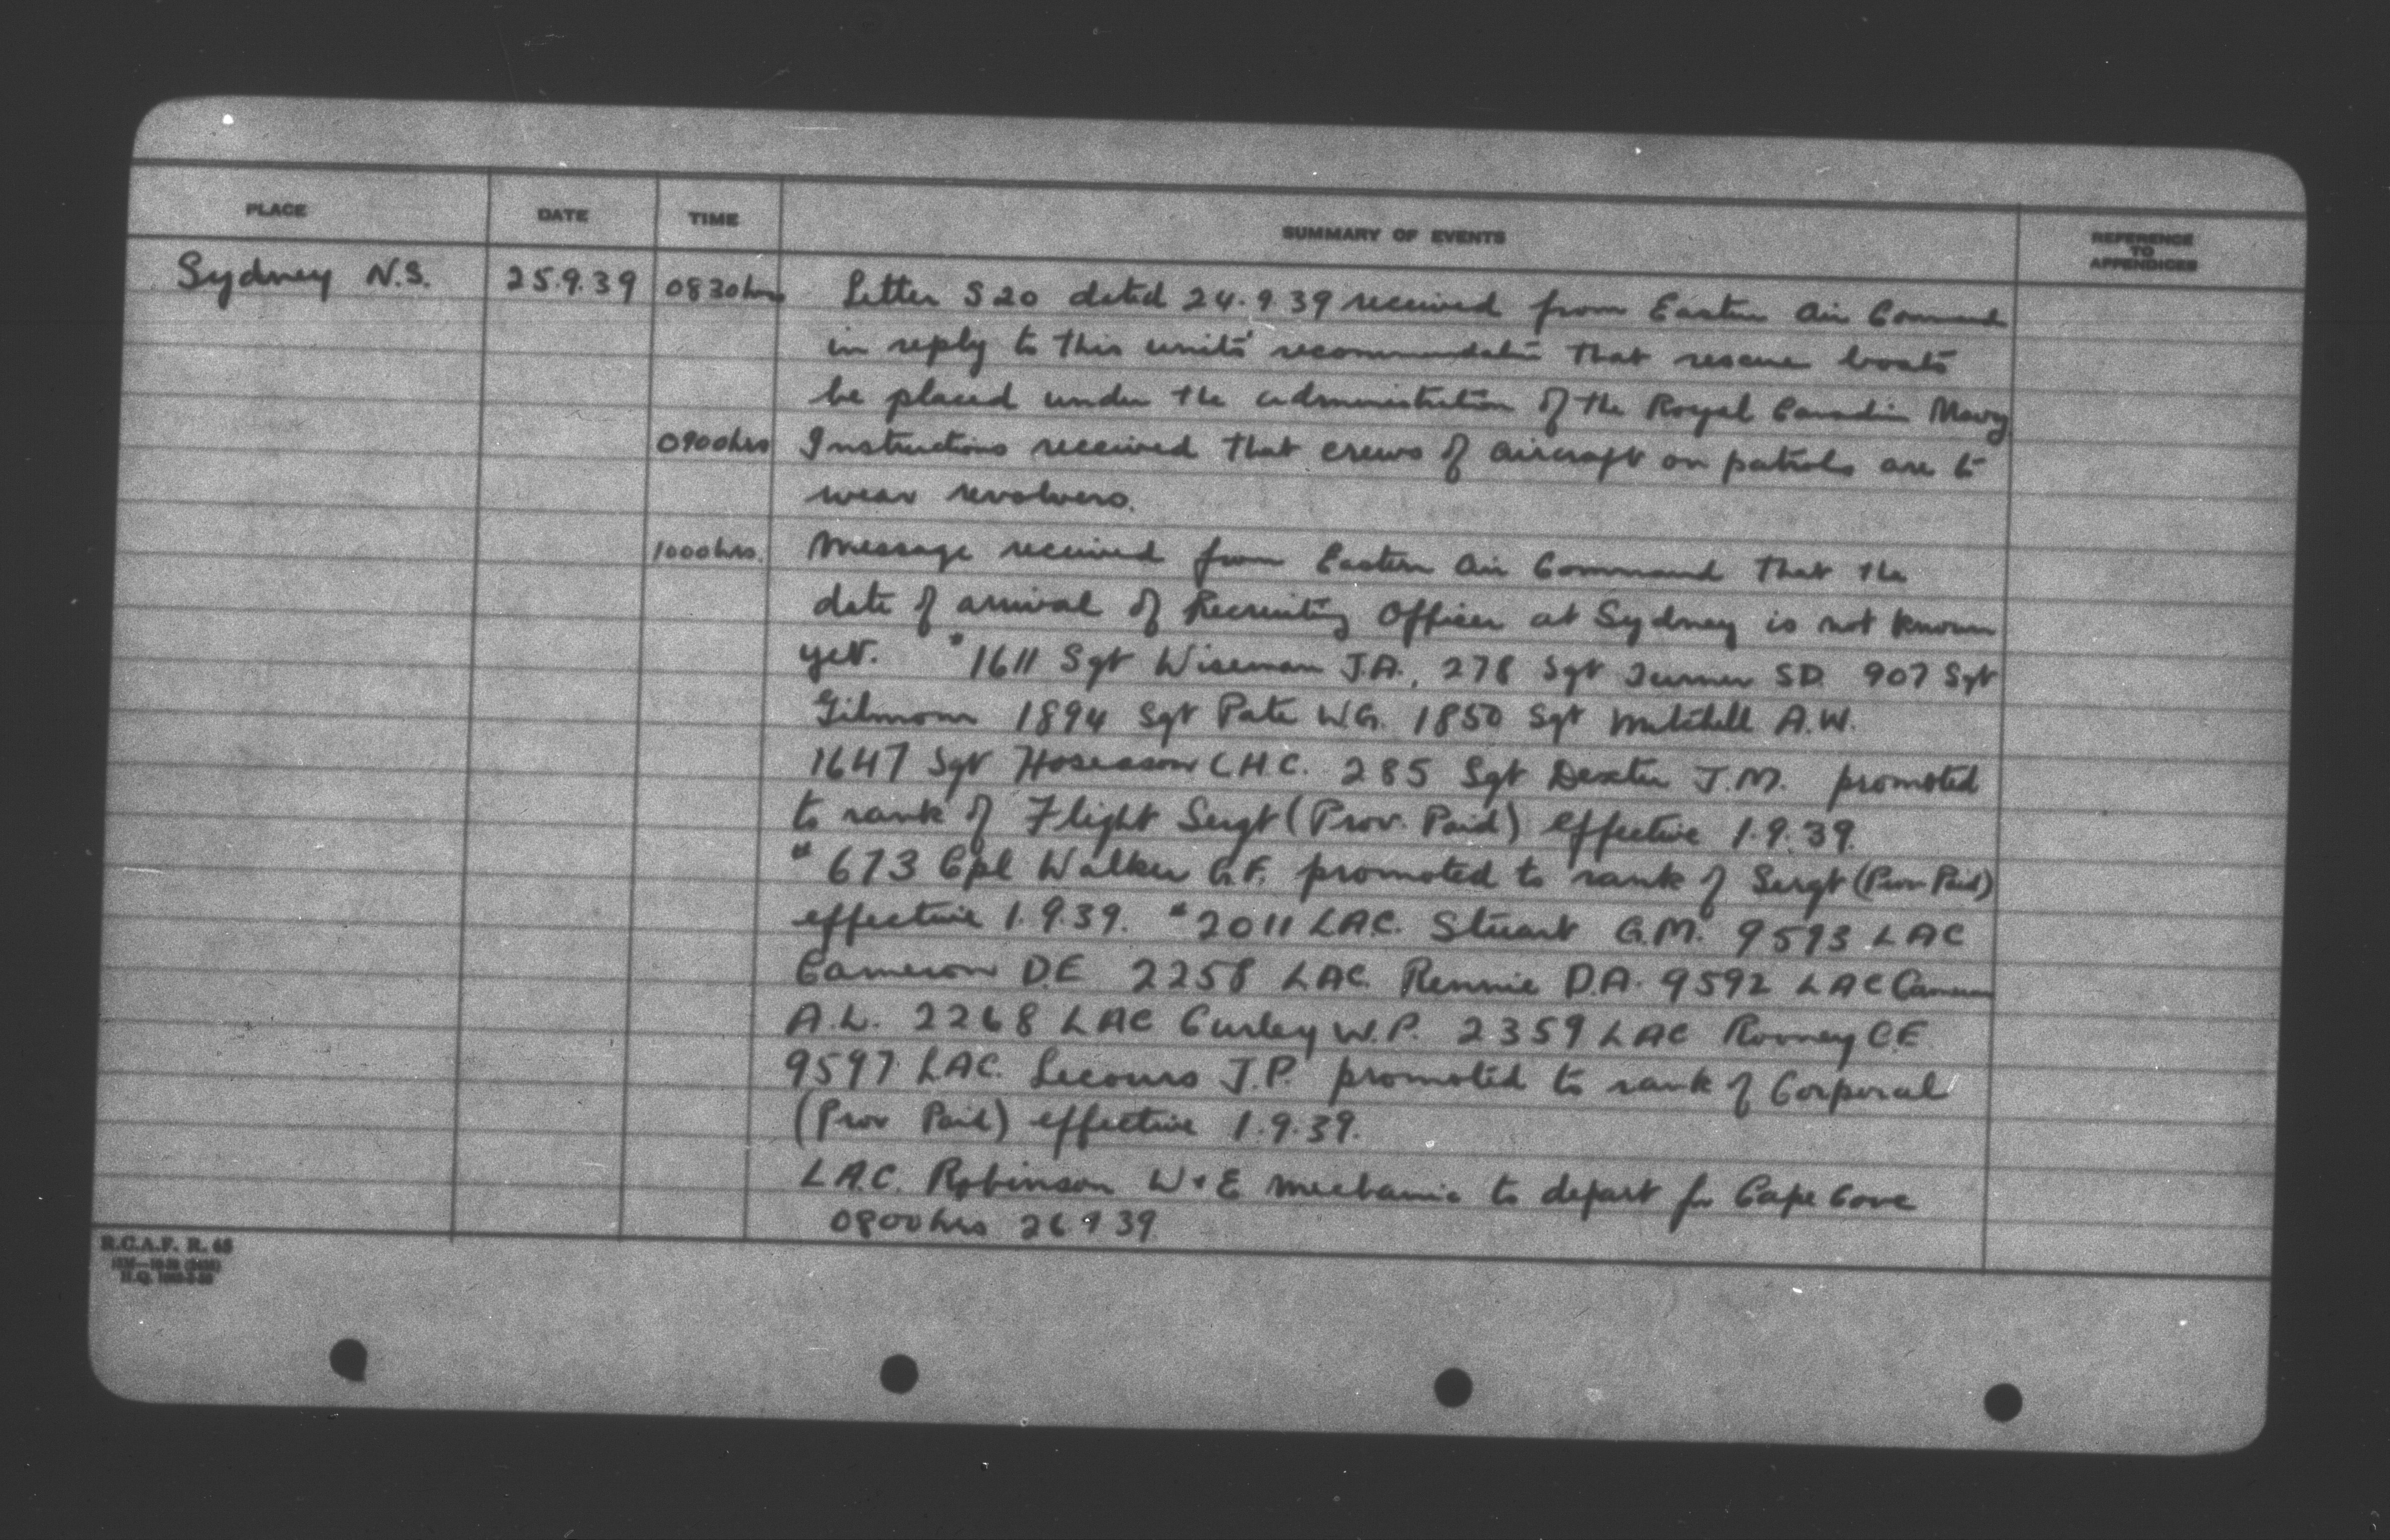 PLACE DATE TIME SUMMARY OF EVENTS REFERENCE TO APPENDICES
Sydney N.S. 25.9.39 0830hrs Letter S20 dated 24.9.39 received from Eastern Air Command
in reply to this units' recommendation that rescue boats
be placed under the administration of the Royal Canadian Navy
0900hrs Instructions received that crews of aircraft on patrols are to
wear revolvers.
1000hrs. Message received from Eastern Air Command that the
date of arrival of Recruiting Officer at Sydney is not known
yet. * 1611 Sgt Wiseman J.A., 278 Sgt Turner SD. 907 Sgt
Gilmour 1894 Sgt Pate W.G. 1850 Sgt Mitchell A.W.
1647 Sgt Hoseason C.H.C. 285 Sgt Dexter J.M. promoted
to rank of Flight Sergt (Prov. Paid) effective 1.9.39.
* 673 Cpl Walker G.F. promoted to rank of Sergt (Prov Paid)
effective 1.9.39. * 2011 LAC. Stuart G.M. 9593 LAC
Cameron D.E 2258 LAC. Rennie D.A. 9592 LAC Cameron
A.L. 2268 LAC Curley W.P. 2359 LAC Rooney C.E
9597 LAC. Lecours J.P. promoted to rank of Corporal
(Prov Paid) effective 1.9.39.
L.A.C. Robinson W+E mechanic to depart for Cape Cove
0800hrs 26 9 39
R.C.A.F. R. 65